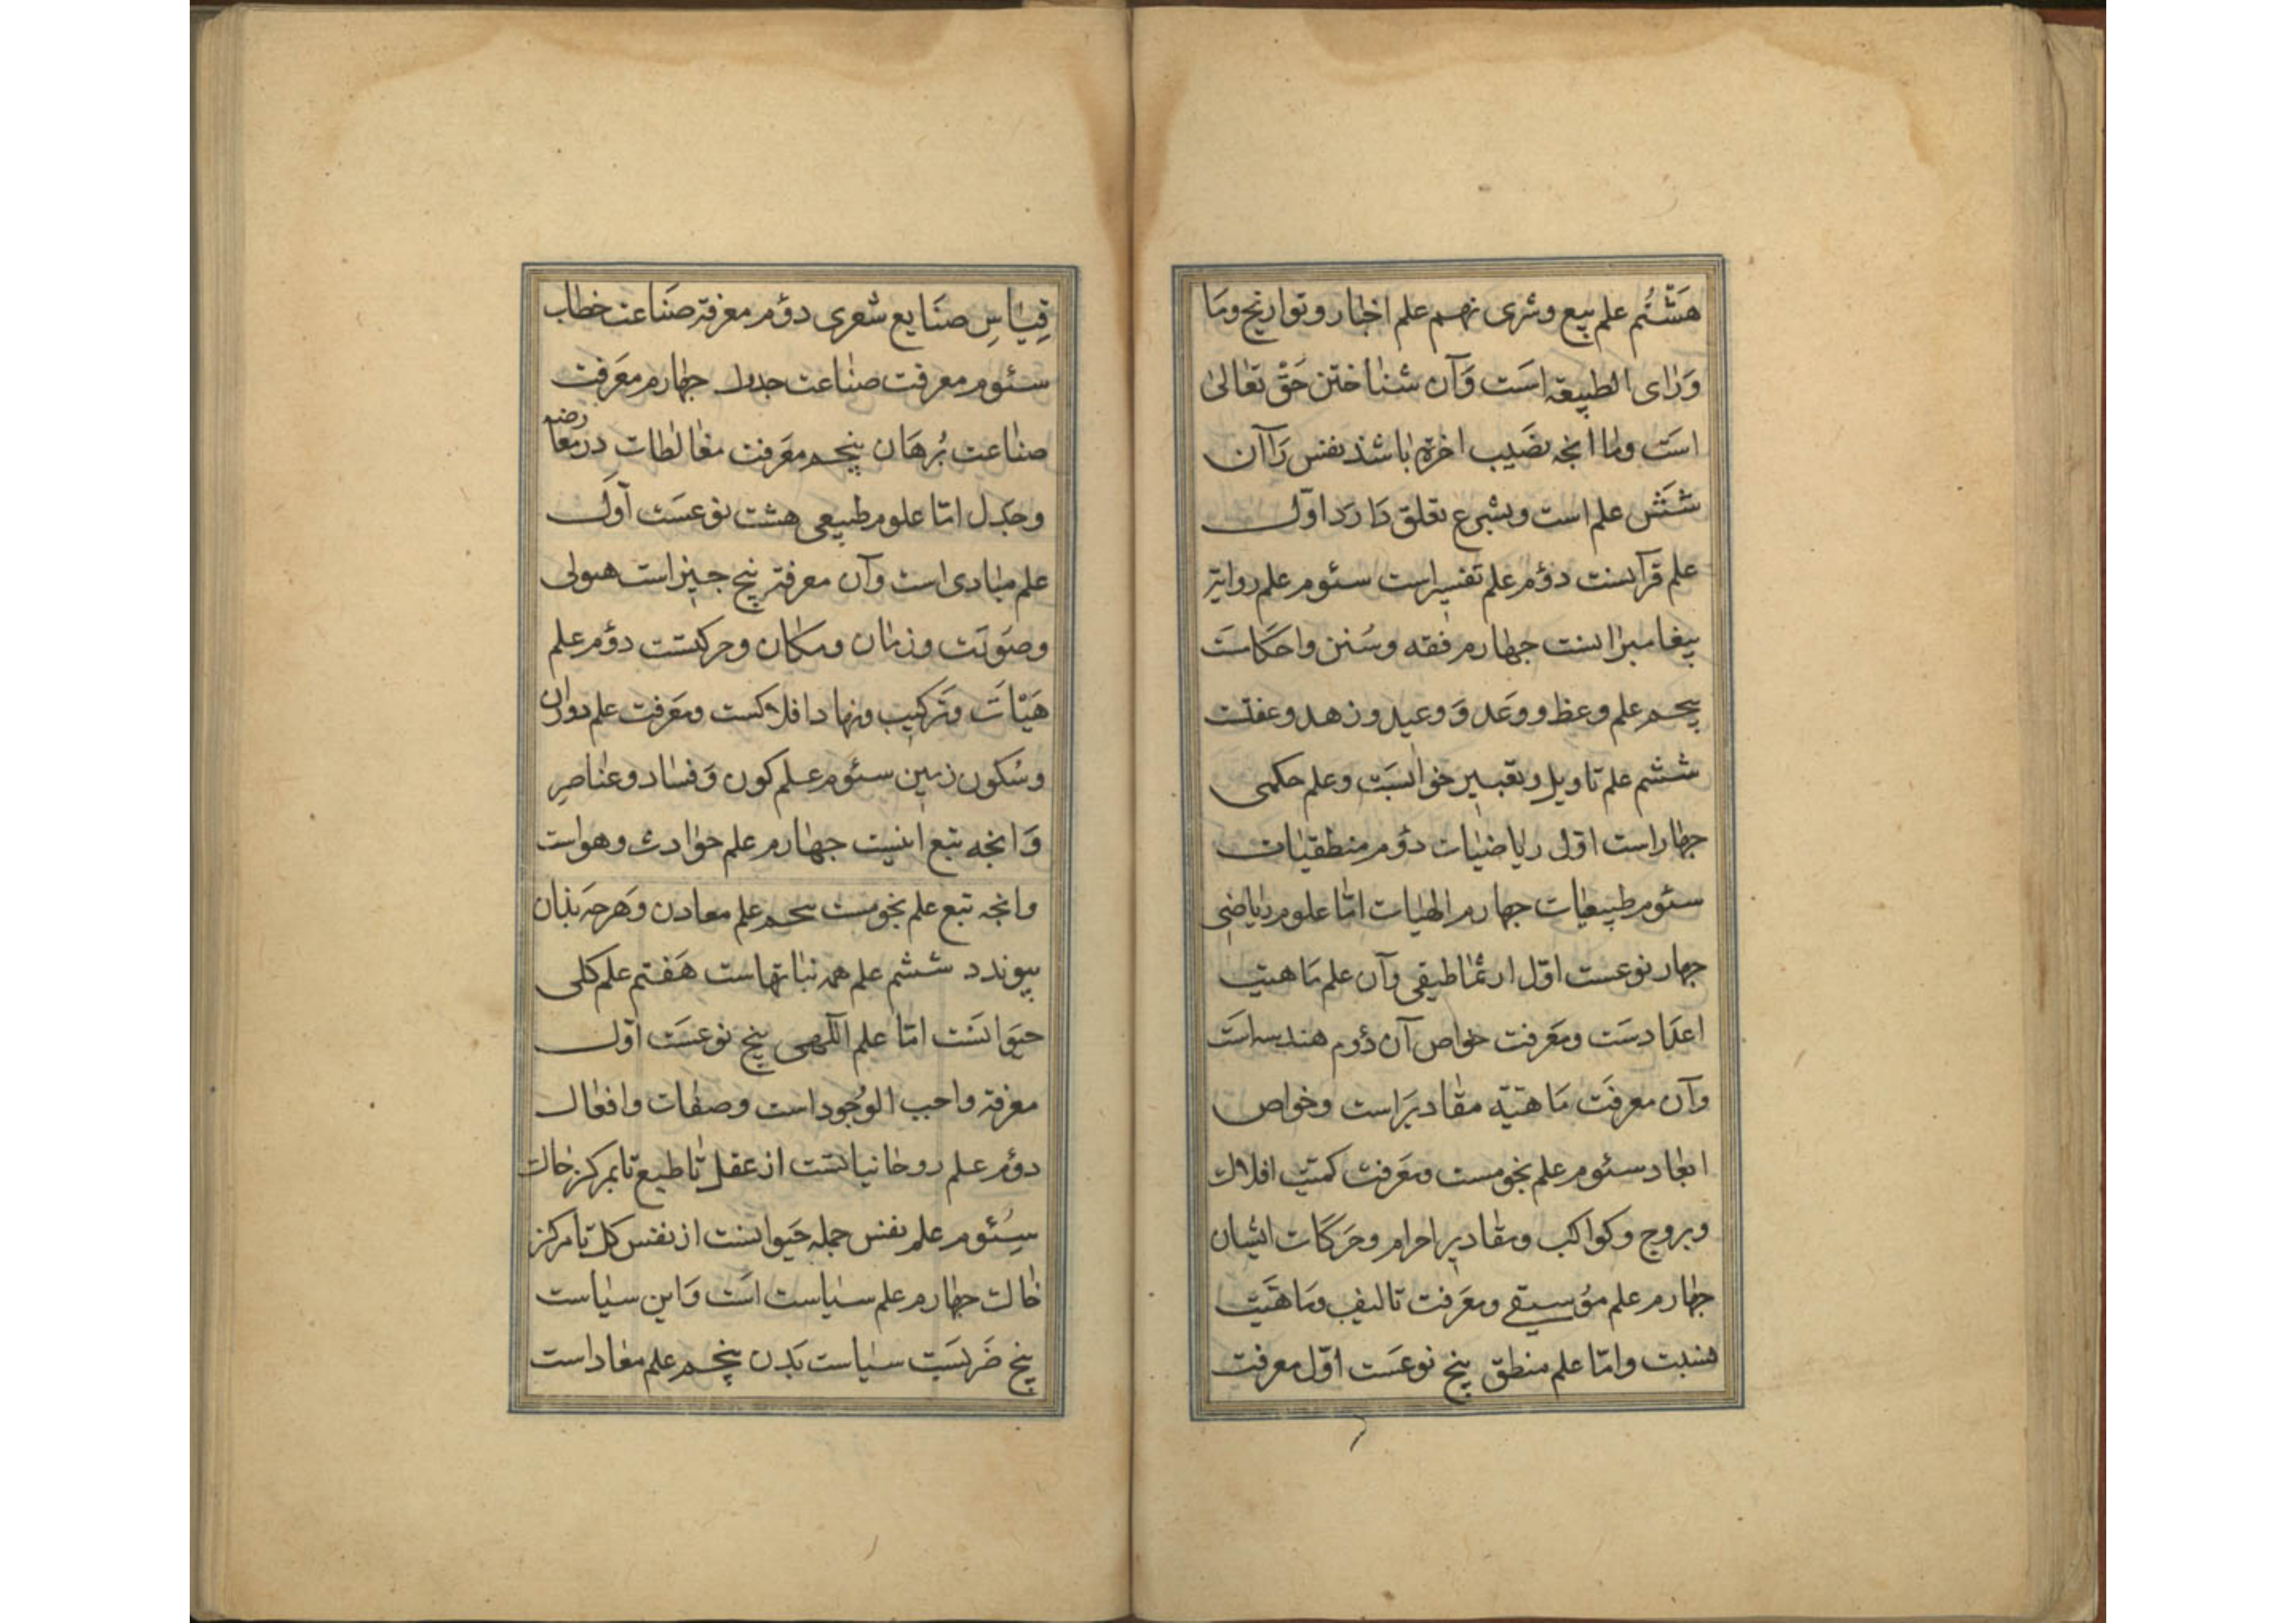 هَشْتُم علم بیع و شری نهم علم اخبار و تواریخ و مَا
وَرَای الطبیعة است وَآن شناختن حَقّ تعالیٰ
است و اما انجه نصَیب اخرة باشد نفس رَا آن
شَشْ علم است و بشرع تعلق دَارَد اوّل
علم قرآنست دوُم علم تفسیر است سئوم علم روایة
پیغامبرانست جهارم فقه و سُنن و احکامست
پنجم علم وعظ و وَعَد وَ وعید و زهد و عفتست
ششم علم تاویل و تعبیر خوابسَت و علم حکمی
جهار است اوّل ریاضیات دوُم منطقیات
سئوم طبیعیات جهارم الهیات امّا علوم ریاضی
جهار نوعست اوّل ارثماطیقی وآن علم مَاهیت
اعدَادسَت و معَرفت خواص آن دوُم هندسه است
وآن معرفَت مَاهیّة مقادیرَ است و خواص
ابعاد سئوم علم نجومست و معَرفت کمیّت افلاك
و بروج و کواکب و مقادیر اجرام و حَرَکَات ایشان
جهارم علم موُسیقے و معَرفت تالیف و مَاهیَت
نسبت و امّا علم منطق پنج نوعسَت اوّل معرفت
قِیَاسِ صنَایع شعری دوُم معرفة صَناعت خطاب
سئوم معرفت صناعت جدل جهارم معَرفت
صناعت بُرهَان پنجم معَرفت مغالطات در معارضه
و جدَل امّا علوم طبیعی هشت نوعسَت اوَّل
علم مبادی است وآن معرفة پنج جیز است هیولی
و صوَرَت و زمان و مکان و حرکتست دوُم علم
هَیْاَت وَتَرکیب و نهاد افلاکست و معَرفت علم دوران
و سُکون زمین سئوم علم کون وَ فساد و عناصرِ
وَ انجه تبع اینست جهارم علم حوادث و هواست
وانجه تبع علم نجومست پنجم علم معادن وَ هَرجَه بذان
پیوندد ششم علم همه نباتهاست هَفتم علم کلی
حیَوانسَت امّا علم الٓهی پنج نوعسَت اوّل
معرفة واجب الوُجود است و صفات و افعال
دوُم علم روحانیانست از عقل تا طبع تا بمرکز خاك
سِئُوم علم نفس جمله حَیوانست از نفس کل تا مرکز
خاك جهارم علم سیاست است وَ این سیاست
پنج ضَربسَت سیاست بَدن پنجم علم معاد است